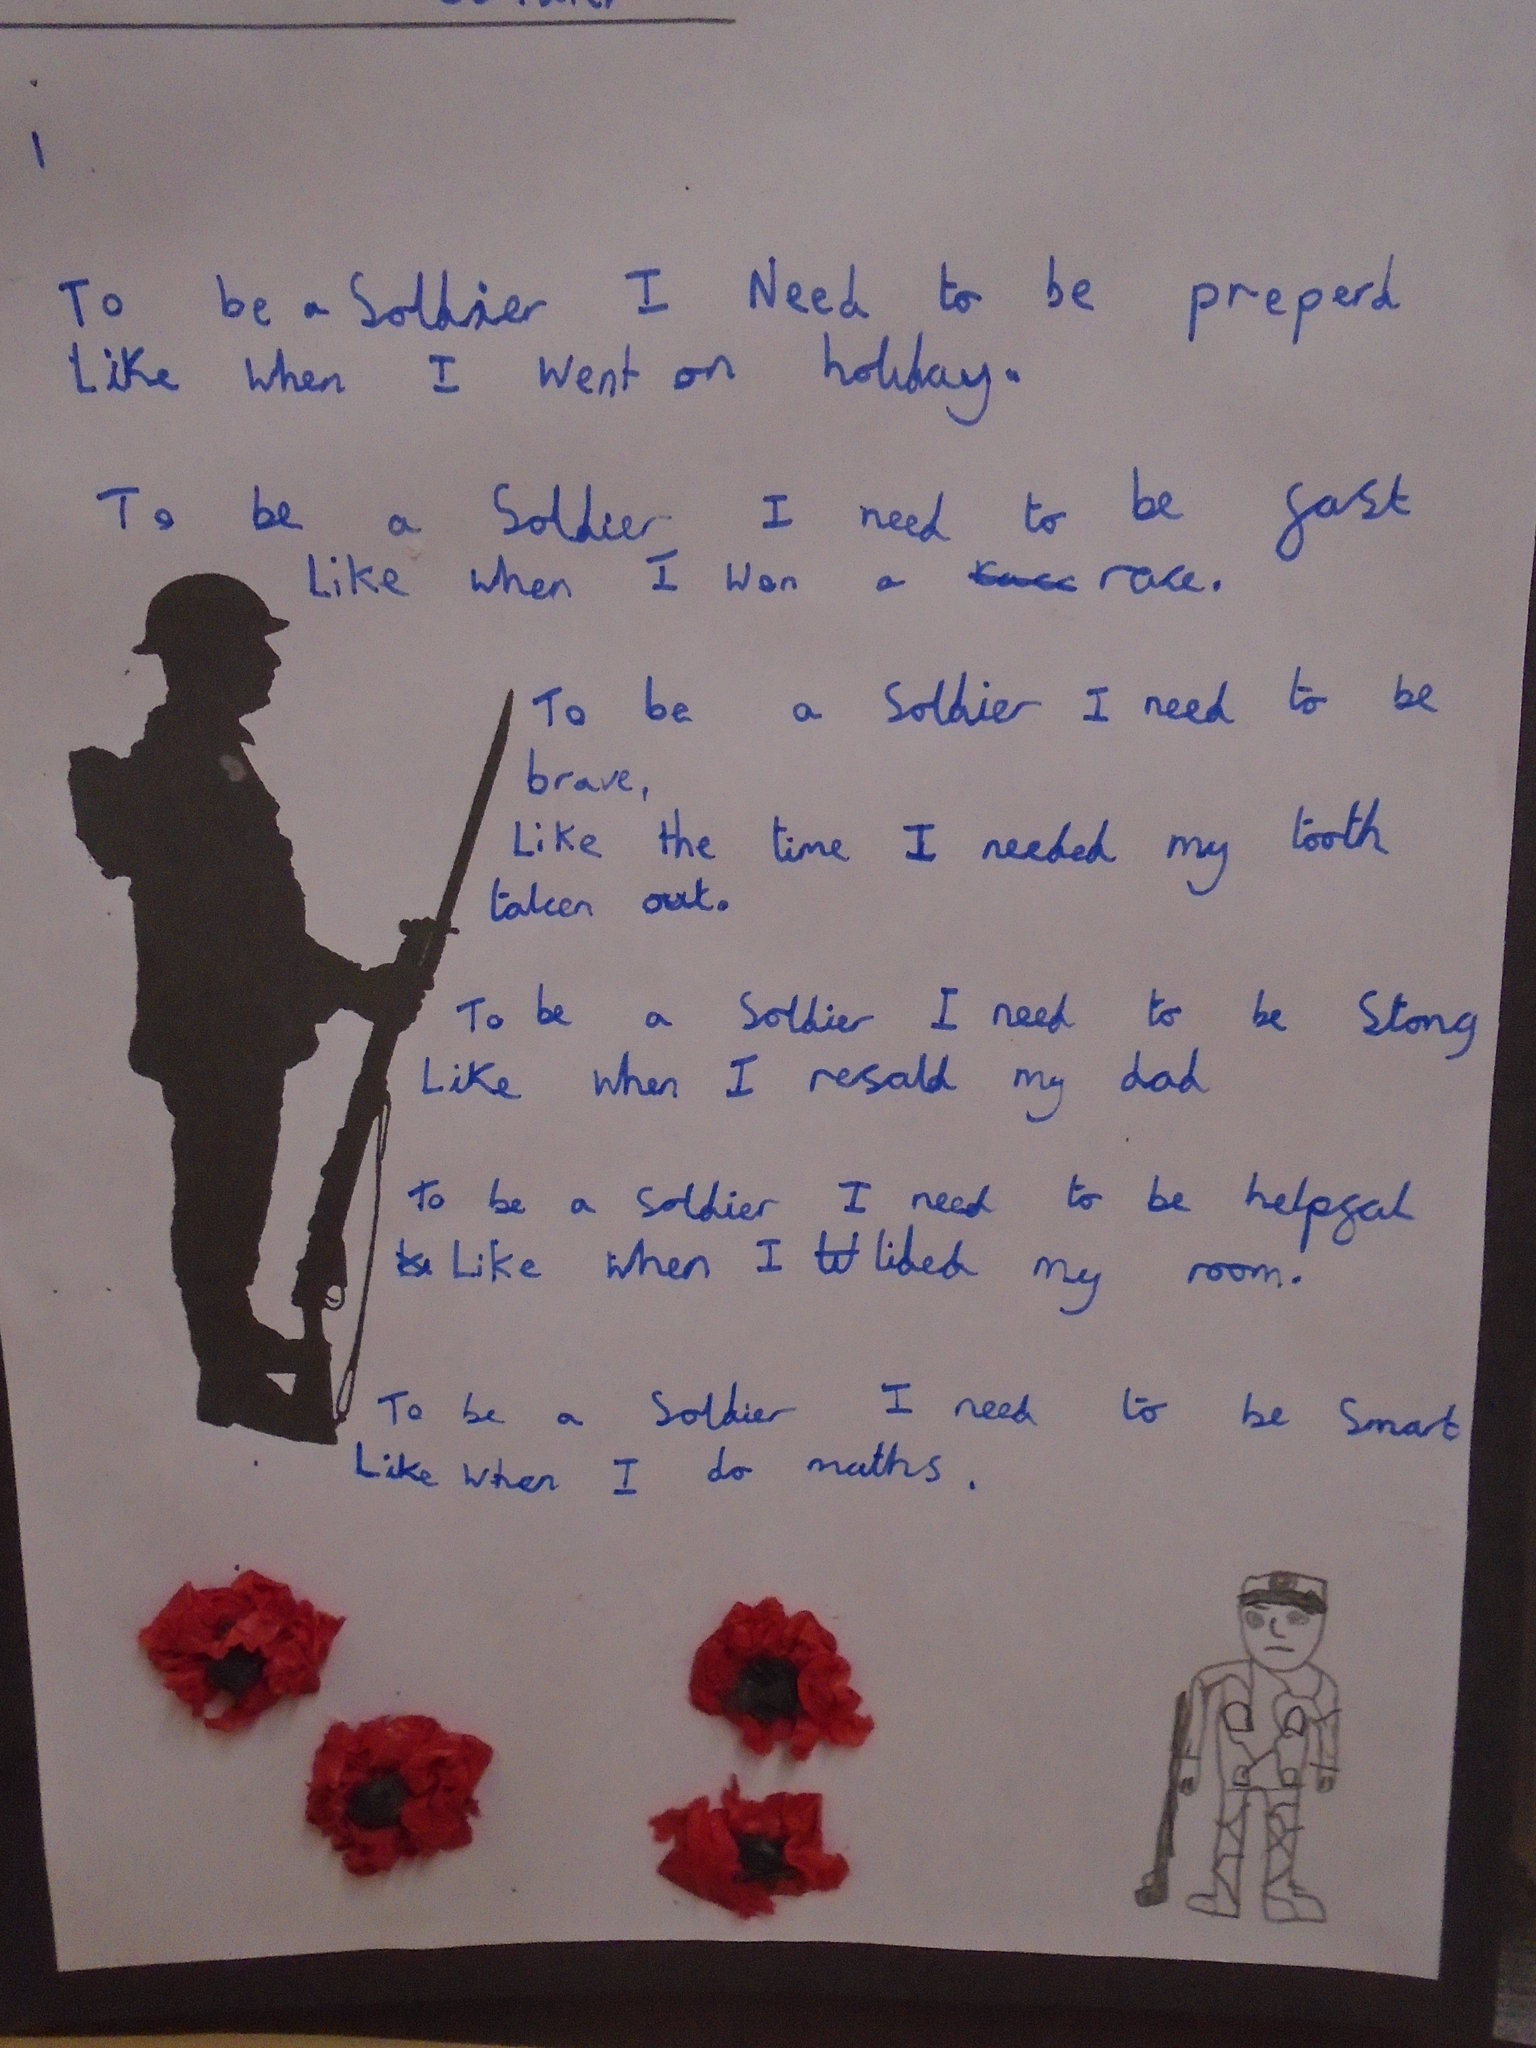 To be a Soldier I Need to be preperd
Like when I went on holiday.
To be a Soldier I need to be fast
Like when I won a race.
To be a Soldier I need to be
brave,
Like the time I needed my tooth
taken out.
To be a Soldier I need to be Stong
Like when I resald my dad
To be a Soldier I need to be helpfal
Like when I lided my room.
To be a Soldier I need to be Smart
Like when I do maths.